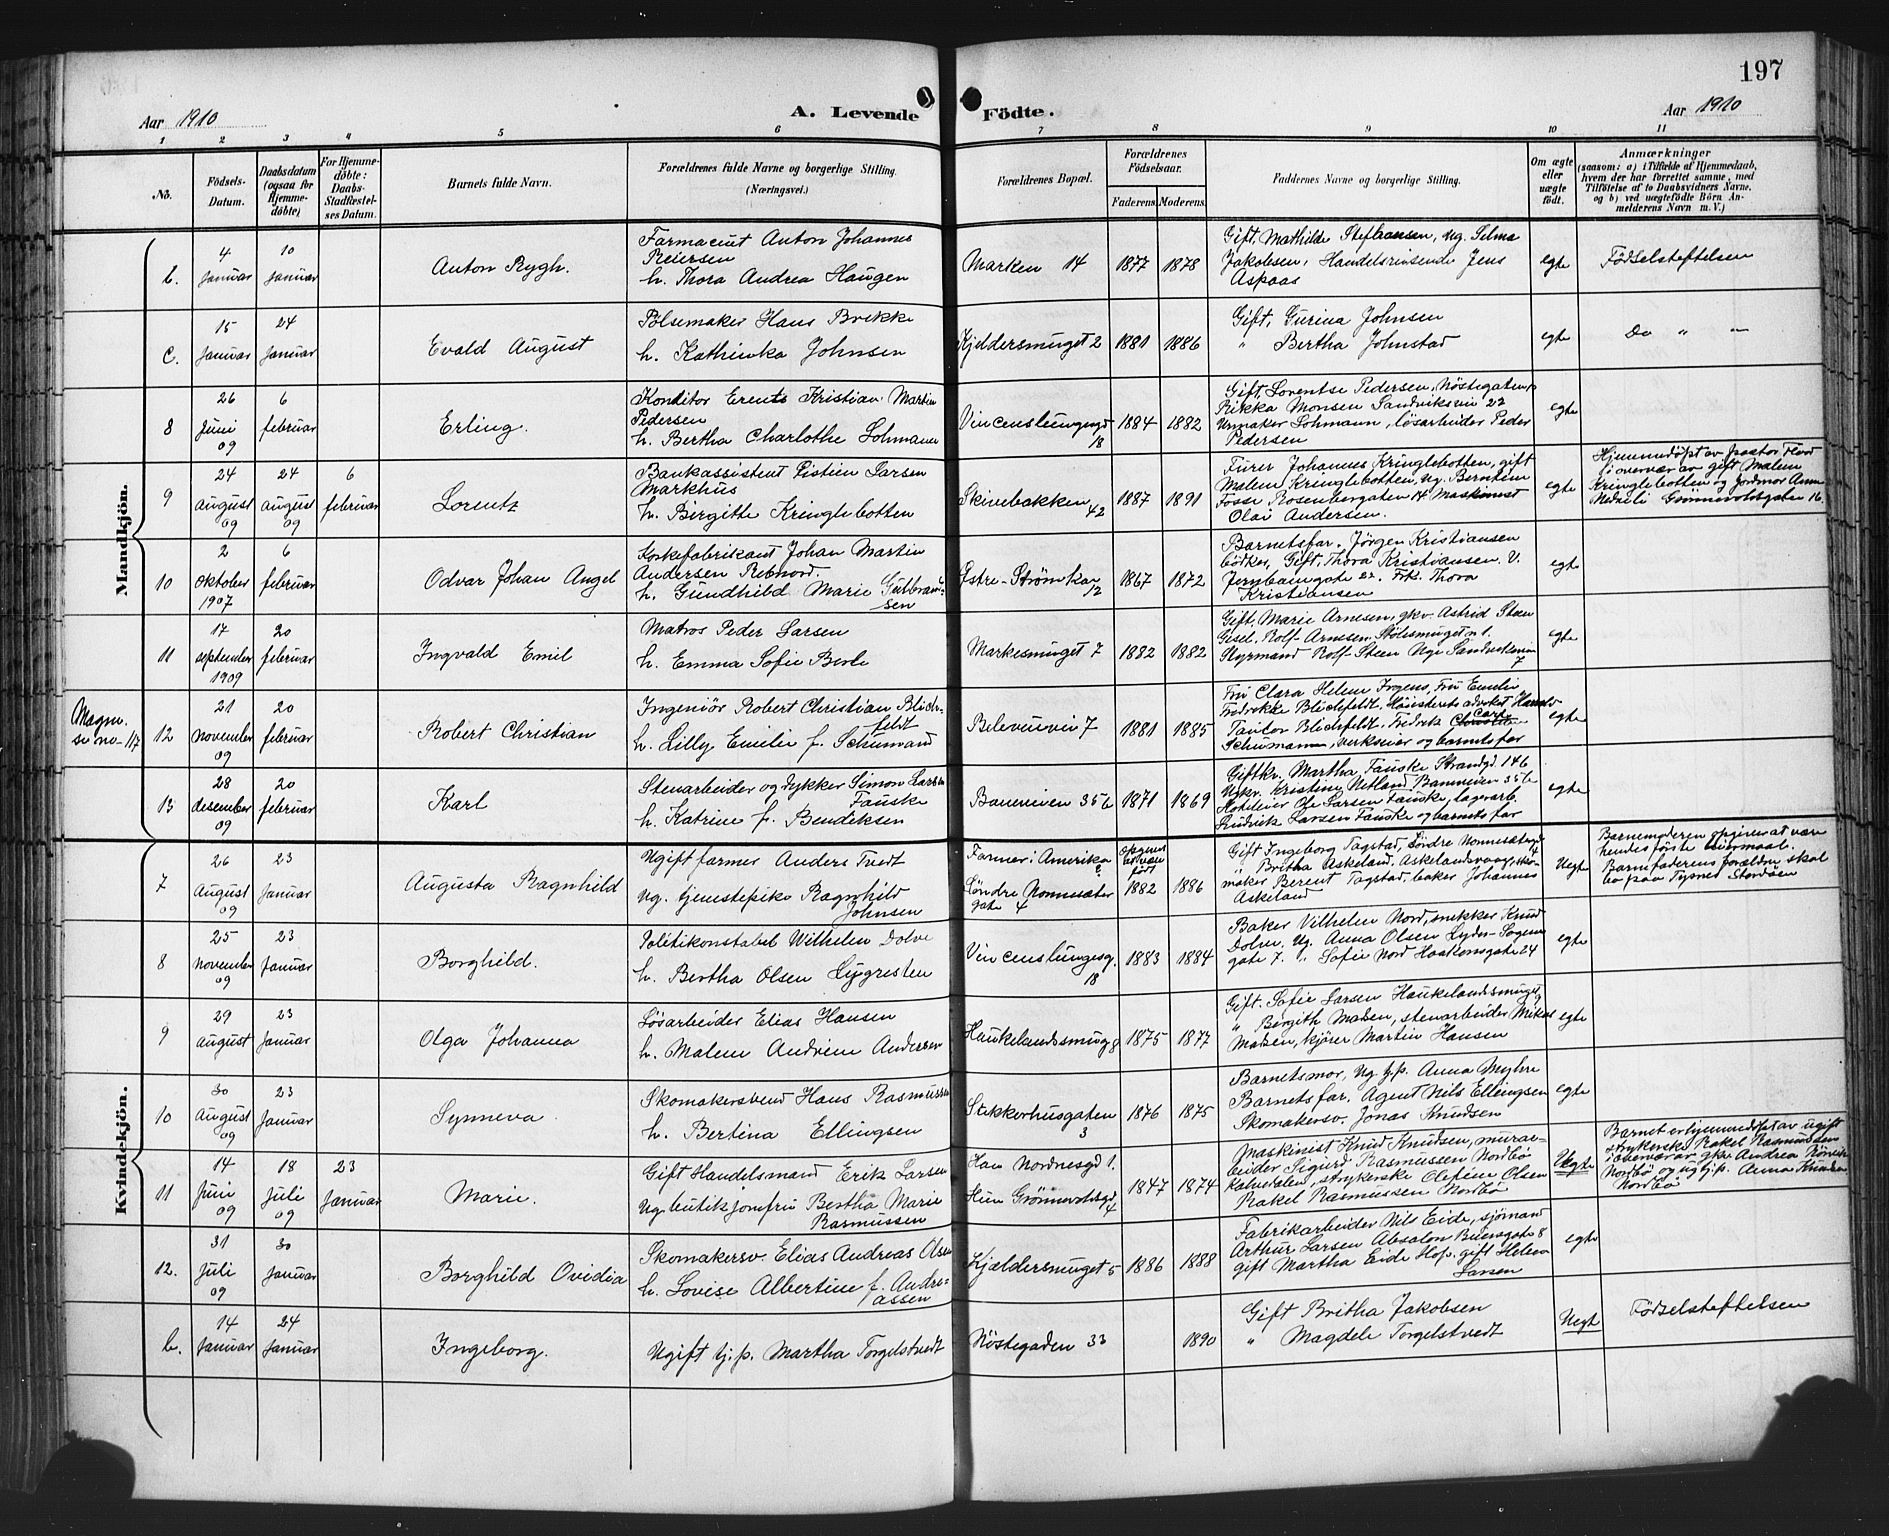 197
Aar 1910
A. Levende
Födte.
Aar 1910
1 2 3 4 5 6 7 8 9 10 11
No.
Födsels-
Datum.
Daabsdatum
(ogsaa for
Hjemme-
döbte)
For Hjemme-
döbte:
Daabs-
Stadfestel-
ses Datum.
Barnets fulde Navn.
Forældrenes fulde Navne og borgerlige Stilling.
(Næringsvei.)
Forældrenes Bopæl.
Forældrenes
Födselsaar.
Faderens. Moderens.
Faddernes Navne og borgerlige Stilling.
Om ægte
eller
uægte
födt.
Anmærkninger
(saasom: a) i Tilfælde af Hjemmedaab,
hvem der har forrettet samme, med
Tilföielse af to Daabsvidners Navne.
og b) ved uægtefödte Börn An-
melderens Navn m. V.)
Mandkjön.
b.
4
Januar
10
Januar
Anton Rygh.
Farmaceut Anton Johannes
Reiersen
h. Thora Andrea Haugen
Marken 14
1877 1878
Gift, Mathilde Steffansen, ug. Selma
Jakobsen, Handelsreisende Jens
Aspaas
egte
Födselsteftelsen
c.
15
Januar
24
Januar
Evald August
Pölsemaker Hans Brekke
h. Kathinka Johnsen
Kjeldersmuget 2
1881 1886
Gift, Gurina Johnsen
" Bertha Johnstad
egte
Do " "
8
26
Juni
09
6
februar
Erling.
Konditor Erents Kristian Martin
Pedersen
h. Bertha Charlothe Lohmann
Vincenslungesgd
18
1884 1882
Gift, Lorentse Pedersen, Nöstegaten,
Rikka Monsen Sandviksvei 22
Urmaker Lohmann, lösarbeider Peder
Pedersen
egte
9
24
august
09
24
august
09
6
februar
Lorentz
Bankassistent Eistein Larsen
Markhus
h. Birgitte Kringlebotten
Skivebakken
42
1887 1891
Furer Johannes Kringlebotten, gift
Malene Kringlebotten, ug. Berntine
Fosse Rosenbergaten 14 Maskonist
Olai Andersen.
egte
Hjemmedöpt av pastor
i overvær av gift Malene
Kringlebotten og Jordmor Anne
Grönnevoldsgaten 16.
10
2
oktober
1907
6
februar
Odvar Johan Angel
Korkefabrikant Johan Martin
Andersen Rebnord.
h. Gundhild Marie Gulbrand-
sen
Østre-Strömkai
12
1867 1872
Barnetsfar. Jörgen Kristiansen
bödker, Gift, Thora Kristiansen V.
Jernbanegate 22. Frk. Thora
Kristiansen
egte
11
17
september
1909
20
februar
Ingvald Emil
Matros Peder Larsen
h. Emma Sofie Berle
Markesmuget 7
1882 1882
Gift, Marie Arnesen, gkv. Astrid Steen
Gesel. Rolf Arnesen, Stölesmuget n 1.
Styrmand Rolf Steen Nye Sandviksvei
7
egte
Magn.
se no- 117
12
21
november
09
20
februar
Robert Christian
Ingeniör Robert Christian Blich-
feldt
h. Lilly Emilie f. Schumann
Bellevuevei 7
1881 1885
Fru Clara Helene Irgens, Fru Emilie
Fredrikke Blichfeldt, Höiesterets advokat Hans
Tautor Blichfeldt, Fredrik Carl
Schumann, verkseier og barnets far
egte
13
28
desember
09
20
februar
Karl
Stenarbeider og dykker Simon Larsen
Fauske
h. Katrine f. Bendiksen
Baneveien 35 b
1871 1869
Giftkv. Martha Fauske Strandgd 146
Ugkv. Kristine Netland, Baneveien 35 b
Hoteleier Ole Larsen Fauske, lagerarb.
Ludvik Larsen Fauske og barnets far
egte
Kvindekjön.
7
26
August
09
23
Januar
Augusta Ragnhild
Ugift farmer Anders Tvedt
Ug. tjenstepike Ragnhild
Johnsen
Farmer i Amerika
Söndre Nonnesæter
gate 4
1882 1886
Gift Ingeborg Tagstad, Söndre Nonnesætergd
4
" Britha Askeland, Askelandsvaag, sko-
maker Berent Tagstad, baker Johannes
Askeland
Uegte
Barnemoderen opgiver at være
hendes förste leiermaal.
Barnefaderens forældre skal
bo paa Tysnes Stordöen
8
25
November
09
23
Januar
Borghild.
Politikonstabel Wilhelm Dolve
h. Bertha Olsen Lygresten
Vincenslungesg.
18
1883 1884
Baker Vilhelm Nord, snekker Knud
Dolve, Ug. Anna Olsen Lyder-Sagens
gate 7. " Sofie Nord Haakonsgate 24
egte
9
29
august
23
Januar
Olga Johanna
Lösarbeider Elias Hansen
h. Malene Andrine Andersen
Haukelandssmug 8
1875 1877
Gift. Sofie Larsen Haukelandssmuget
9
" Bergith Madsen, stenarbeider Mikas
Madsen, kjörer Martin Hansen
egte
10
30
August
09
23
Januar
Synneva
Skomakersvend Hans Rasmussen
h. Bertina Ellingsen
Stikkerhusgaten
3
1876 1875
Barnetsmor, ug tj.p. Anna Myhre
Barnets far, Agent Nils Ellingsen
Skomakersv. Jonas Knudsen
egte
11
14
Juni
09
18
Juli
09
23
Januar
Marie.
Gift Handelsmand Erik Larsen
Ug. butikjomfru Bertha Marie
Rasmussen
Han Nordnesgd 1.
Hun Grönnevoldsgd
4
1847 1874
Maskinist Knud Knudsen, murar-
beider Sigurd Rasmussen Nordbö
Kalvedalen, strykerske Olefine Olsen
Rakel Rasmussen Nordbö
Uegte
Barnet er hjemmedöbt av ugift
strykerske Rakel Rasmussen
i overvær av gkv. Andrea
Nordbö og ug tj.p. Anna Knudsen
Nordbö
12.
31
Juli
09
30
Januar
Borghild Ovidia
Skomakersv. Elias Andreas Olsen
h. Lovise Albertine f. Andre-
assen
Kjældersmuget 5
1886 1888
Fabrikarbeider Nils Eide, sjömand
Arthur Larsen Absalon Beiersgate 8
gift Martha Eide Hop. gift Helene
Larsen
egte
b.
14
Januar
24
Januar
Ingeborg.
Ugift tj.p. Martha Torgelstvedt
Nöstegaden 33
1890
Gift Britha Jakobsen
" Magdele Torgelstvedt
Uegt
Födselsteftelsen